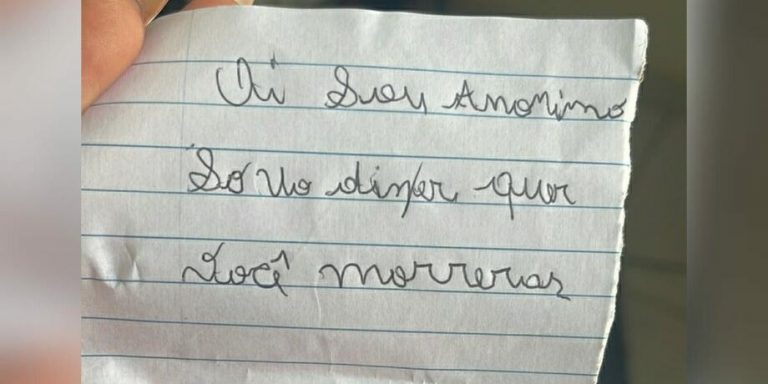 Oi sou Anonimo
Só vo dinzer quer
você morreras